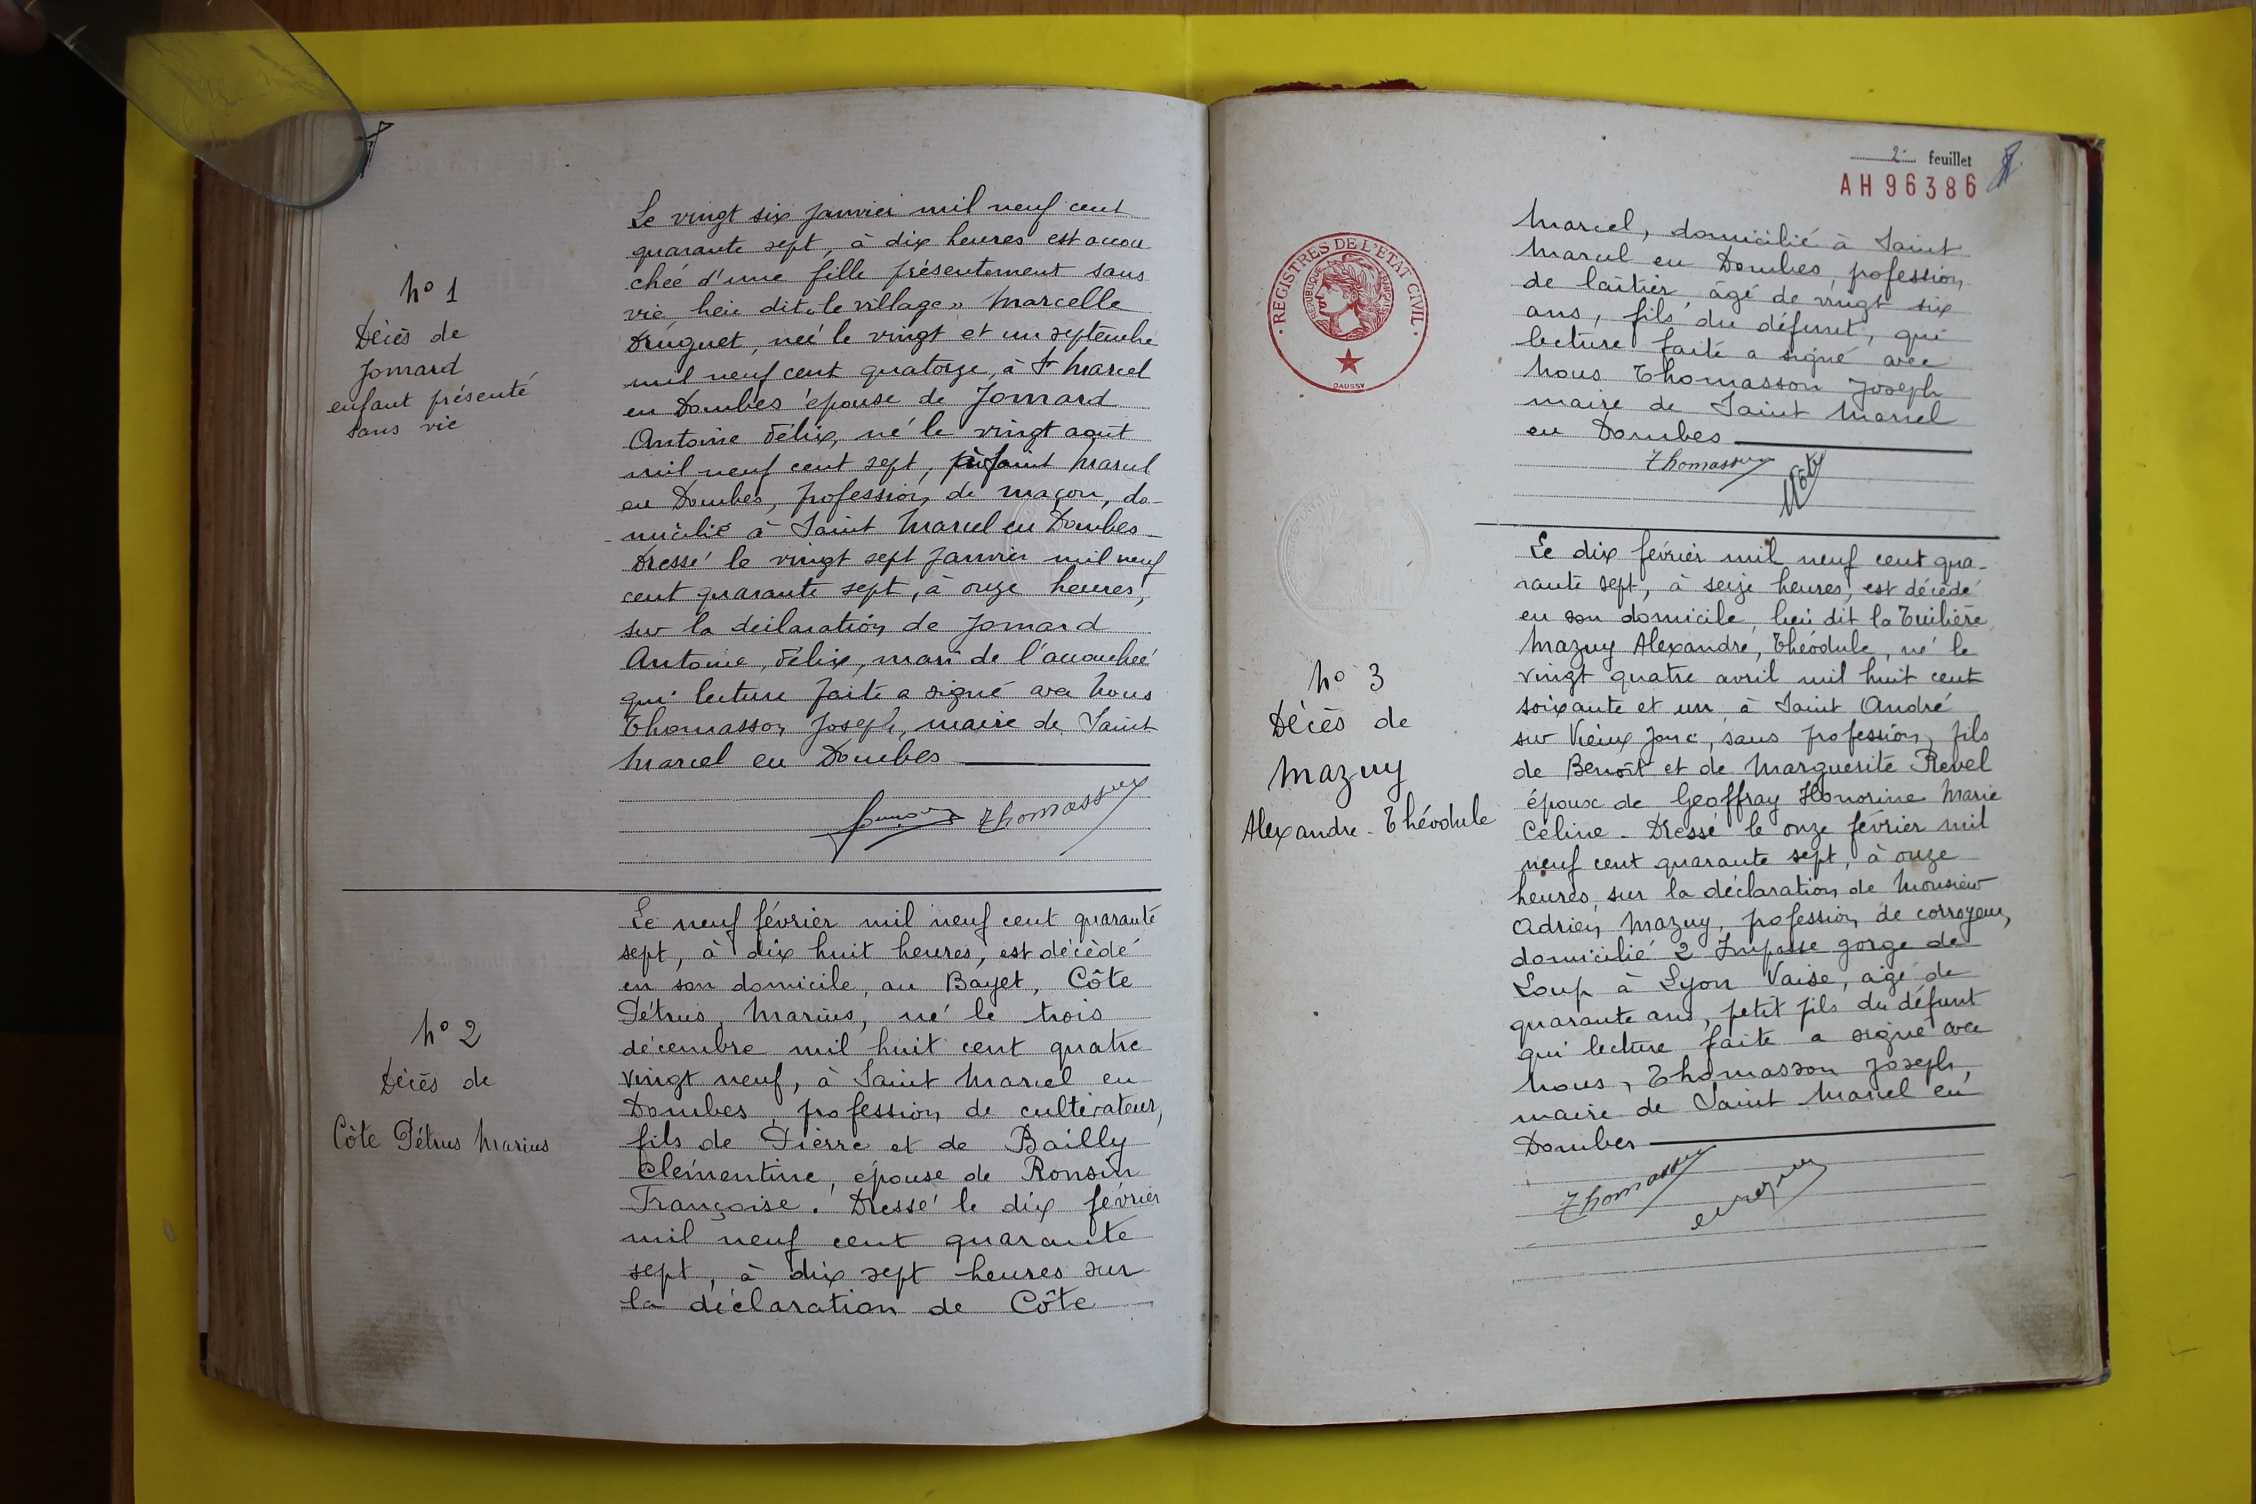 N° 1
Décès de
Jomard
enfant présenté
sans vie
Le vingt six janvier mil neuf cent
quarante sept, à dix heures est accou
chée d'une fille présentement sans
vie, lieu dit "le village" Marcelle
Druguet, née le vingt et un septembre
mil neuf cent quatorze, à St Marcel
en Dombes épouse de Jomard
Antoine Félix, né le vingt août
mil neuf cent sept, à Saint Marcel
en Dombes, profession de maçon, do-
micilié à Saint Marcel en Dombes
Dressé le vingt sept janvier mil neuf
cent quarante sept, à onze heures,
sur la déclaration de Jomard
Antoine, Félix, mari de l'accouchée
qui lecture faite a signé avec Nous
Thomasson Joseph, maire de Saint
Marcel en Dombes
Thomasson
N° 2
Décès de
Côte Pétrus Marius
Le neuf février mil neuf cent quarante
sept, à dix huit heures, est décédé
en son domicile, au Bayet, Côte
Pétrus, Marius, né le trois
décembre mil huit cent quatre
vingt neuf, à Saint Marcel en
Dombes, profession de cultivateur,
fils de Pierre et de Bailly
Clémentine, épouse de Ronsin
Françoise. Dressé le dix février
mil neuf cent quarante
sept, à dix sept heures sur
la déclaration de Côte
2 feuillet
AH96386
REGISTRES DE L'ETAT CIVIL
REPUBLIQUE FRANÇAISE
DAUSSY
Marcel, domicilié à Saint
Marcel en Dombes, profession
de laitier, âgé de vingt six
ans, fils du défunt, qui
lecture faite a signé avec
Nous Thomasson Joseph
maire de Saint Marcel
en Dombes
Thomasson
N° 3
Décès de
Mazuy
Alexandre - Théodule
Le dix février mil neuf cent qua-
rante sept, à seize heures, est décédé
en son domicile, lieu dit la Tuilière
Mazuy Alexandre, Théodule, né le
vingt quatre avril mil huit cent
soixante et un, à Saint André
sur Vieux Jonc, sans profession, fils
de Benoît et de Marguerite Revel
époux de Geoffray Honorine Marie
Céline - Dressé le onze février mil
neuf cent quarante sept, à onze
heures, sur la déclaration de Monsieur
Adrien Mazuy, profession de corroyeur,
domicilié 2 Impasse gorge de
Loup à Lyon Vaise, âgé de
quarante ans, petit fils du défunt
qui lecture faite a signé avec
Nous, Thomasson Joseph,
maire de Saint Marcel en
Dombes
Thomasson